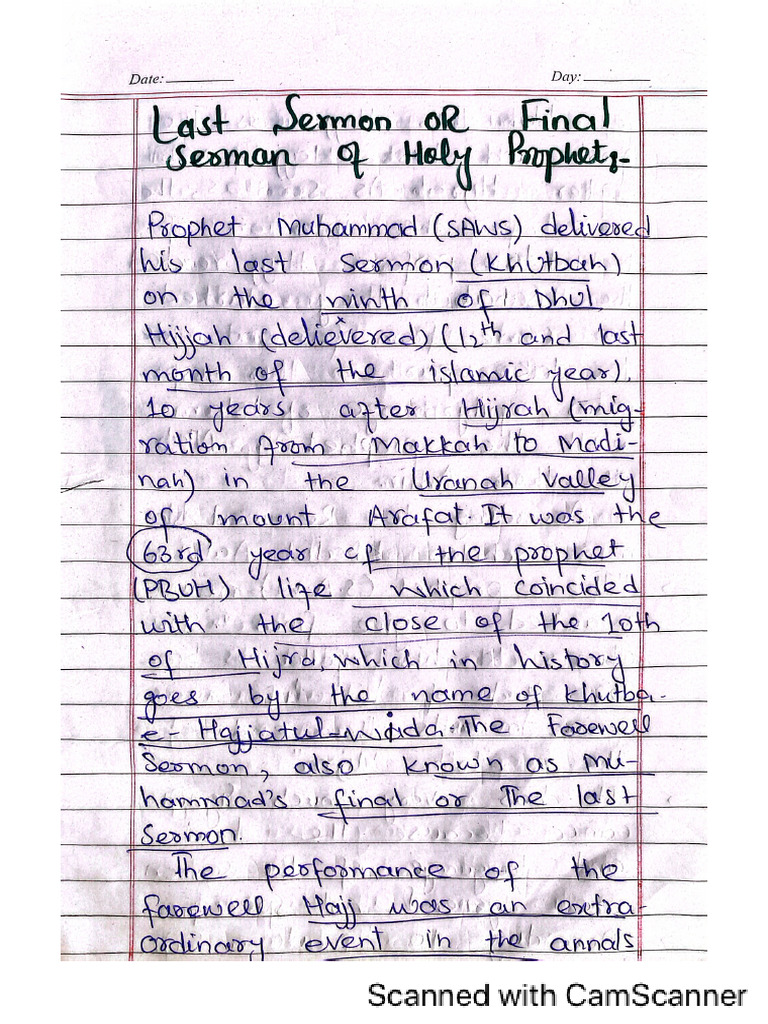 Date: Day:
Last Sermon OR Final
Serman of Holy Prophet:-
Prophet Muhammad (SAWS) delivered
his last sermon (Khutbah)
on the ninth of Dhul
Hijjah (delievered) (12th and last
month of the islamic year),
10 years after Hijrah (mig-
ration from Makkah to Madi-
nah) in the Uranah valley
of mount Arafat. It was the
63rd year of the prophet
(PBUH) life which coincided
with the close of the 10th
of Hijra, which in history
goes by the name of Khutba-
e-Hajjatul-Wida. The Farewell
Sermon, also known as Mu-
hammad's final or The last
Sermon.
The performance of the
farewell Hajj was an extra-
ordinary event in the annals
Scanned with CamScanner